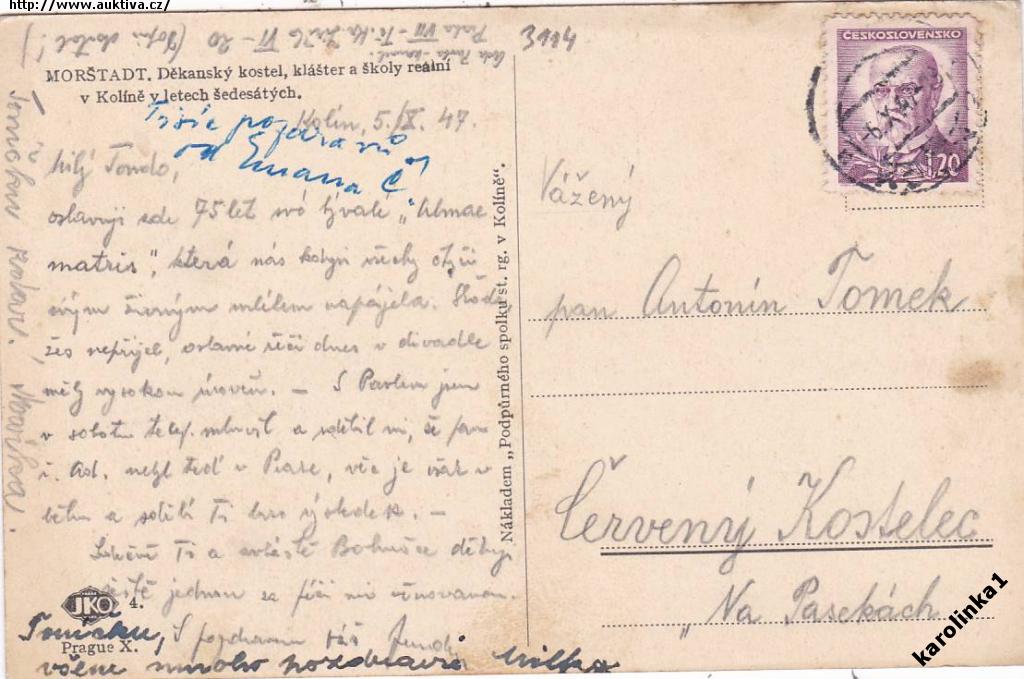 http://www.auktiva.cz/
3114
MORŠTADT. Děkanský kostel, klášter a školy reální
v Kolíně v letech šedesátých.
Kolín, 5./X. 47.
Tisíc pozdravů
od Emana Č.
Milý Tondo,
oslavuji zde 75 let své bývalé „Almae
matris“, která nás kdysi všechny
svým živným mlékem napájela. Škoda
žes nepřijel, oslavné řeči dnes v divadle
měly vysokou úroveň. — S Pavlem jsem
v sobotu telef. mluvil a sdělil mi, že pan
nebyl teď v Praze, věc je však v
běhu a sdělí Ti výsledek. —
Ti a zvláště Bohušce děkuji
ještě jednou za péči mi věnovanou.
S pozdravem Váš
Tomíčku,
všem mnoho pozdravů Milka
JKO
4.
Prague X.
Nákladem „Podpůrného spolku st. rg. v Kolíně“.
ČESKOSLOVENSKO
1.20
Vážený
pan Antonín Tomek
Červený Kostelec
„Na Pasekách
karolinka1